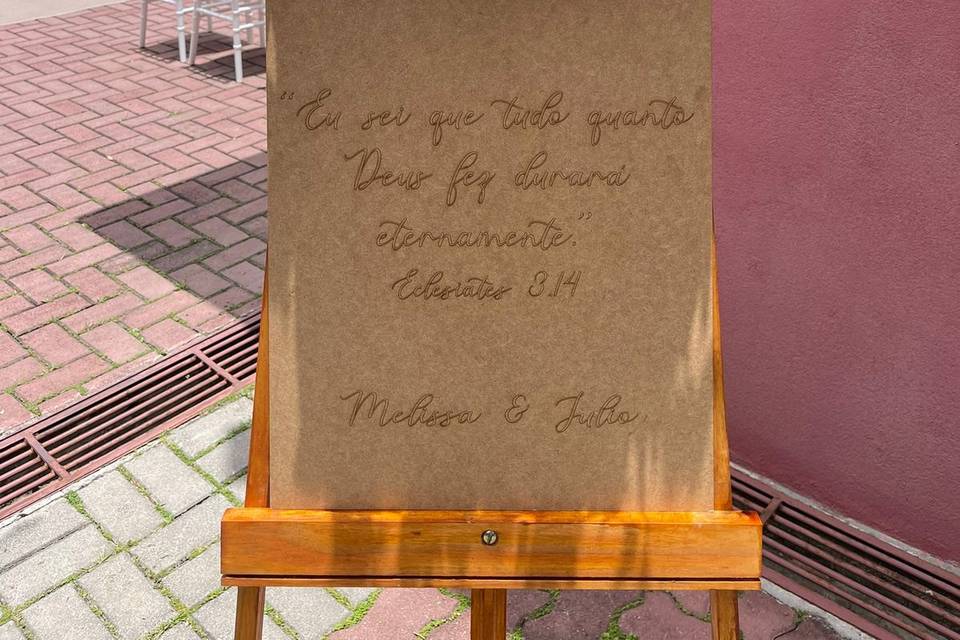 “Eu sei que tudo quanto
Deus fez durará
eternamente.”
Eclesiates 3.14
Melissa & Julio